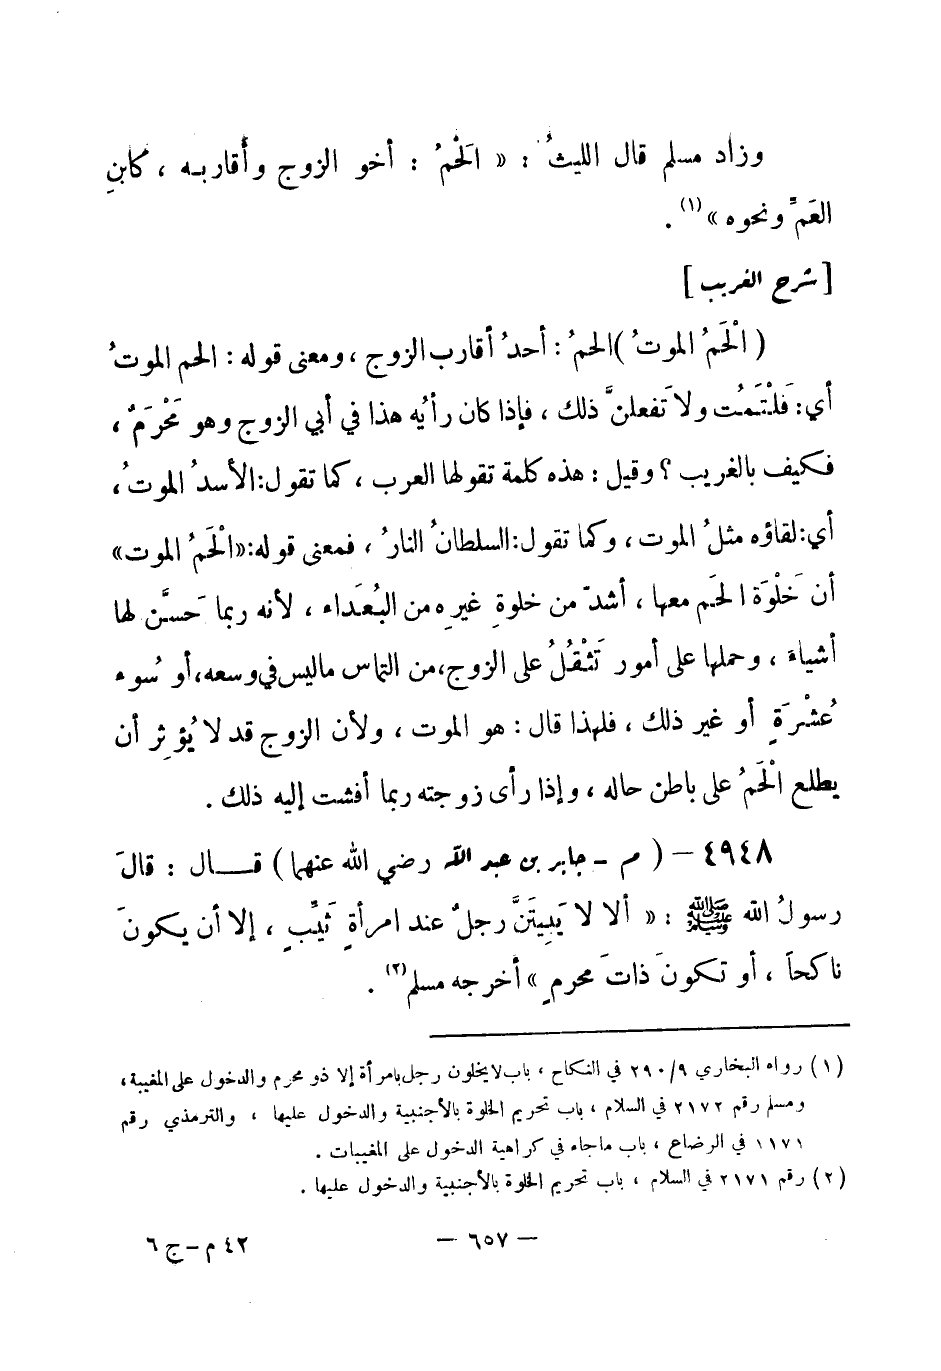 وزاد مسلم قال الليثُ : « الحَمْمُ : أخو الزوج وأقاربه ، كابنِ
العَمِّ ونحوه »(١) .
[ شرح الغريب ]
( الْحَمُ الموتُ )الحمُ : أحدُ أقارب الزوج ، ومعنى قوله : الحم الموتُ
أي: فَلْتَمُت ولا تَفعلنَّ ذلك ، فإذا كان رأيُه هذا في أبي الزوج وهو مَحْرَمٌ ،
فكيف بالغريب ؟ وقيل : هذه كلمة تقولها العرب ، كما تقول: الأسدُ الموتُ ،
أي: لقاؤه مثلُ الموت ، وكما تقول: السلطانُ النارُ ، فمعنى قوله: «الْحَمُ الموت»
أن خَلْوَة الحَم معها ، أشدّ من خلوةِ غيرِه من البُعَداء ، لأنه ربما حَسَّن لها
أشياءَ ، وحملها على أمور تَثْقُلُ على الزوج، من التماس ماليس في وسعه، أو سُوء
عُشْرَةٍ أو غير ذلك ، فلهذا قال : هو الموت ، ولأن الزوج قد لا يُؤثِر أن
يطلع الْحَمُ على باطن حاله ، وإذا رأى زوجته ربما أفشت إليه ذلك .
٤٩٤٨ – ( م – جابر بن عبد الله رضي الله عنهما ) قـــال : قالَ
رسولُ الله ﷺ : « ألا لا يَبِيتَنَّ رجلٌ عند امرأةٍ ثَيِّبٍ ، إلا أن يكونَ
ناكحاً ، أو تكونَ ذاتَ محرمٍ » أخرجه مسلم(٢) .
(١) رواه البخاري ٢٩٠/٩ في النكاح ، باب لايخلون رجل بامرأة إلا ذو محرم والدخول على المغيبة ،
ومسلم رقم ٢١٧٢ في السلام ، باب تحريم الخلوة بالأجنبية والدخول عليها ، والترمذي رقم
١١٧١ في الرضاع ، باب ماجاء في كراهية الدخول على المغيبات .
(٢) رقم ٢١٧١ في السلام ، باب تحريم الخلوة بالأجنبية والدخول عليها .
– ٦٥٧ –
٤٢ م – ج ٦